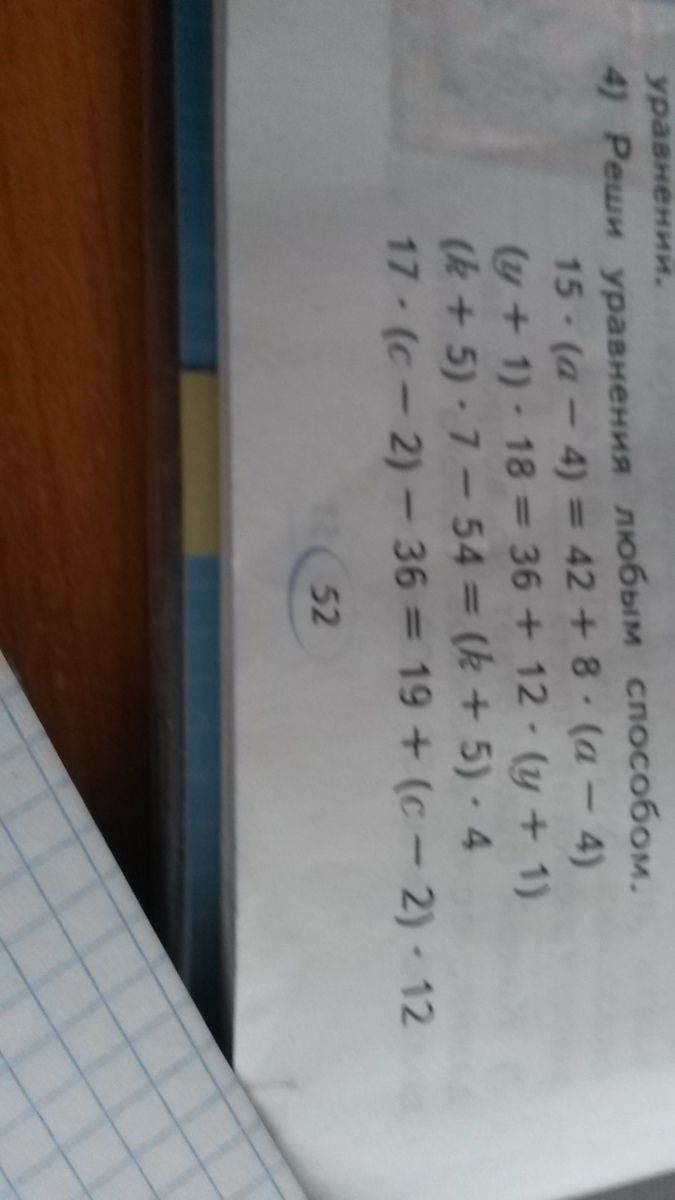 уравнений.
4) Реши уравнения любым способом.
15 · (a − 4) = 42 + 8 · (a − 4)
(y + 1) · 18 = 36 + 12 · (y + 1)
(k + 5) · 7 − 54 = (k + 5) · 4
17 · (c − 2) − 36 = 19 + (c − 2) · 12
52